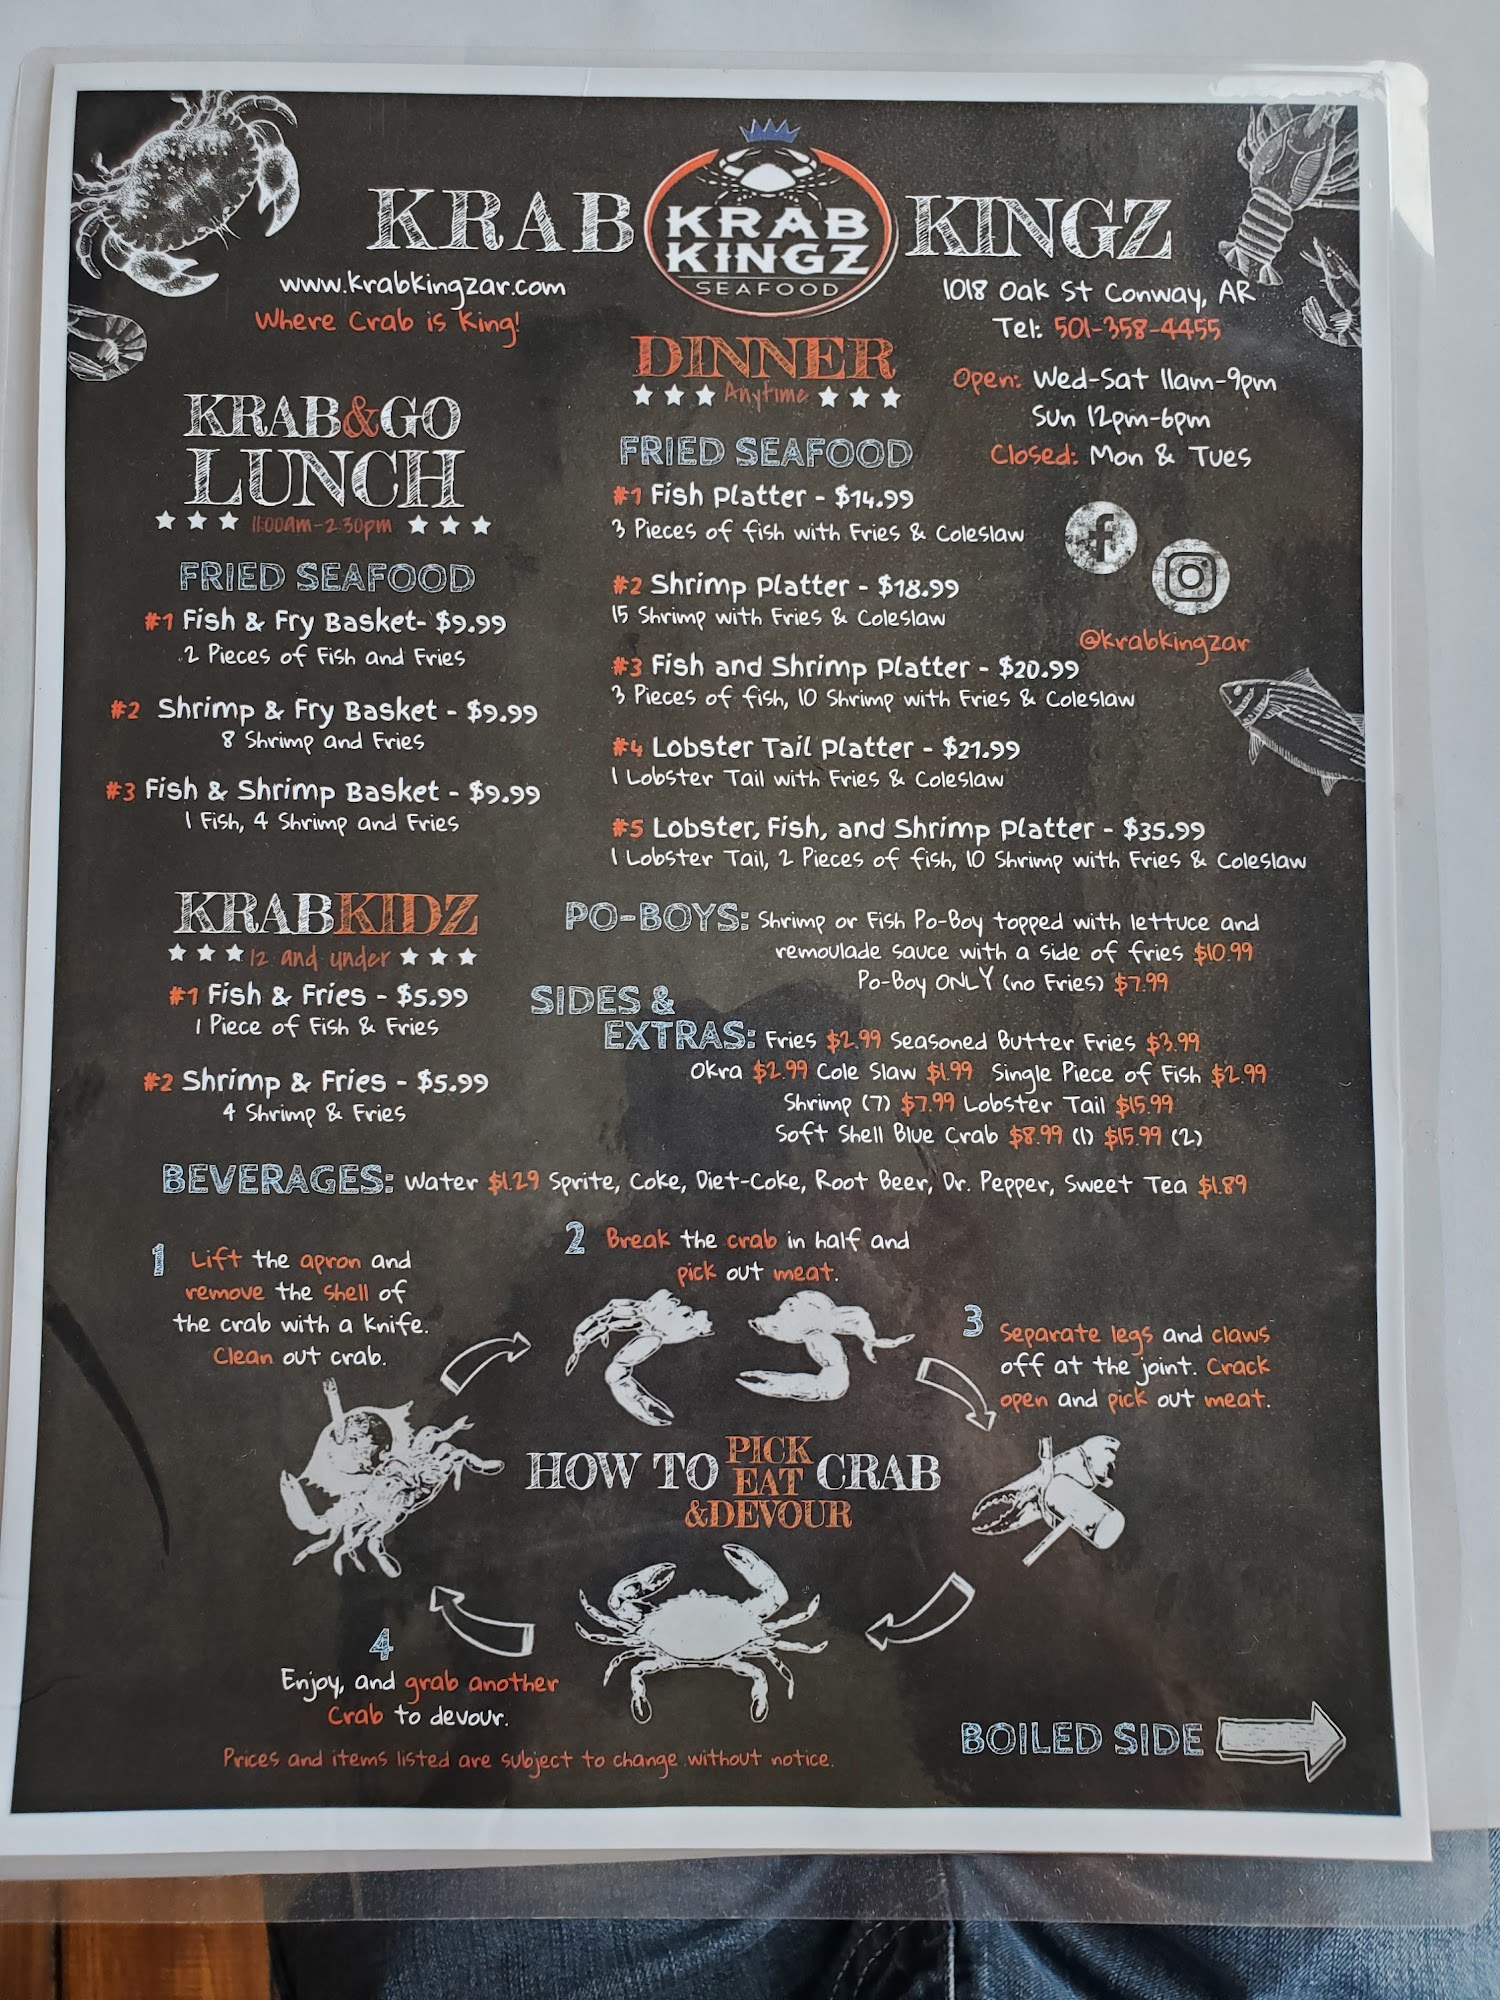 KRAB
KRAB
KINGZ
SEAFOOD
KINGZ
www.krabkingzar.com
Where Crab is King!
1018 Oak St Conway, AR
Tel: 501-358-4455
Open: Wed-Sat 11am-9pm
Sun 12pm-6pm
Closed: Mon & Tues
@krabkingzar
KRAB&GO
LUNCH
11:00am-2:30pm
FRIED SEAFOOD
#1 Fish & Fry Basket- $9.99
2 Pieces of Fish and Fries
#2 Shrimp & Fry Basket - $9.99
8 Shrimp and Fries
#3 Fish & Shrimp Basket - $9.99
1 Fish, 4 Shrimp and Fries
KRABKIDZ
12 and under
#1 Fish & Fries - $5.99
1 Piece of Fish & Fries
#2 Shrimp & Fries - $5.99
4 Shrimp & Fries
DINNER
Anytime
FRIED SEAFOOD
#1 Fish Platter - $14.99
3 Pieces of fish with Fries & Coleslaw
#2 Shrimp Platter - $18.99
15 Shrimp with Fries & Coleslaw
#3 Fish and Shrimp Platter - $20.99
3 Pieces of fish, 10 Shrimp with Fries & Coleslaw
#4 Lobster Tail Platter - $21.99
1 Lobster Tail with Fries & Coleslaw
#5 Lobster, Fish, and Shrimp Platter - $35.99
1 Lobster Tail, 2 Pieces of fish, 10 Shrimp with Fries & Coleslaw
PO-BOYS: Shrimp or Fish Po-Boy topped with lettuce and
remoulade sauce with a side of fries $10.99
Po-Boy ONLY (no Fries) $7.99
SIDES &
EXTRAS: Fries $2.99 Seasoned Butter Fries $3.99
Okra $2.99 Cole Slaw $1.99 Single Piece of Fish $2.99
Shrimp (7) $7.99 Lobster Tail $15.99
Soft Shell Blue Crab $8.99 (1) $15.99 (2)
BEVERAGES: Water $1.29 Sprite, Coke, Diet-Coke, Root Beer, Dr. Pepper, Sweet Tea $1.89
1 Lift the apron and
remove the shell of
the crab with a knife.
Clean out crab.
2 Break the crab in half and
pick out meat.
3 Separate legs and claws
off at the joint. Crack
open and pick out meat.
HOW TO PICK EAT &DEVOUR CRAB
4
Enjoy, and grab another
Crab to devour.
Prices and items listed are subject to change without notice.
BOILED SIDE